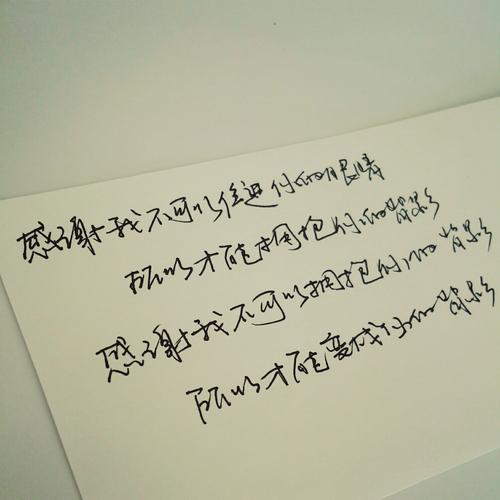 感谢我不可以住进你的眼睛
所以才能拥抱你的背影
感谢我不可以拥抱你的背影
所以才能变成你的背影